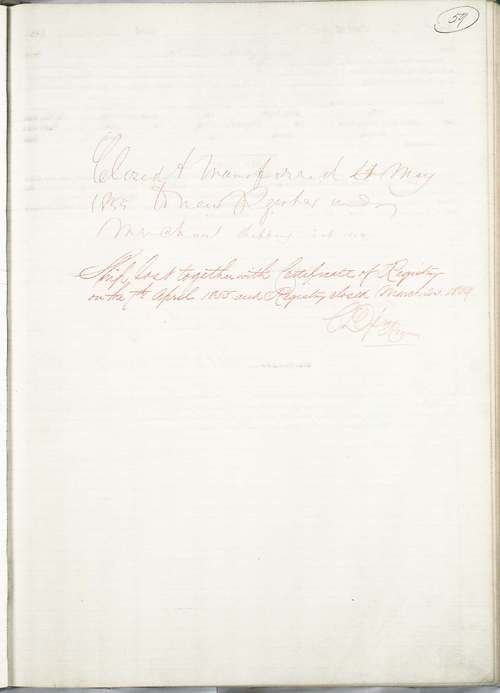 59
Closed & transferred 1st May
1855 to new Register under
Merchant Shipping Act
Ship lost together with Certificate of Registry
on the 7th April 1855 and Registry closed March 1859